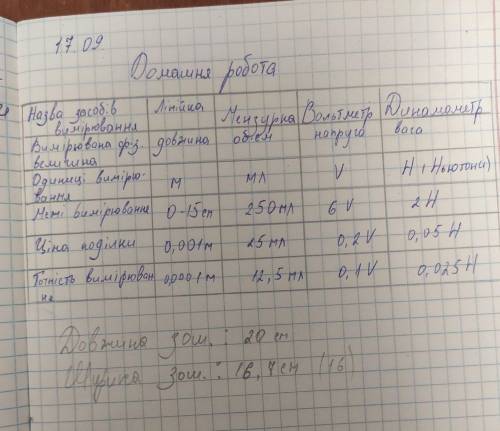 17.09
Домашня робота
Назва засобів вимірювання Лінійка Мензурка Вольтметр Динамометр
Вимірювана фіз. величина довжина об'єм напруга вага
Одиниці вимірювання м мл V Н (Ньютони)
Межі вимірювання 0-15 см 250 мл 6 V 2 Н
Ціна поділки 0,001 м 25 мл 0,2 V 0,05 Н
Точність вимірюван 12,5 мл 0,1 V 0,025 Н
Довжина зош.: 20 см
Ширина зош.: 16,4 см (16)